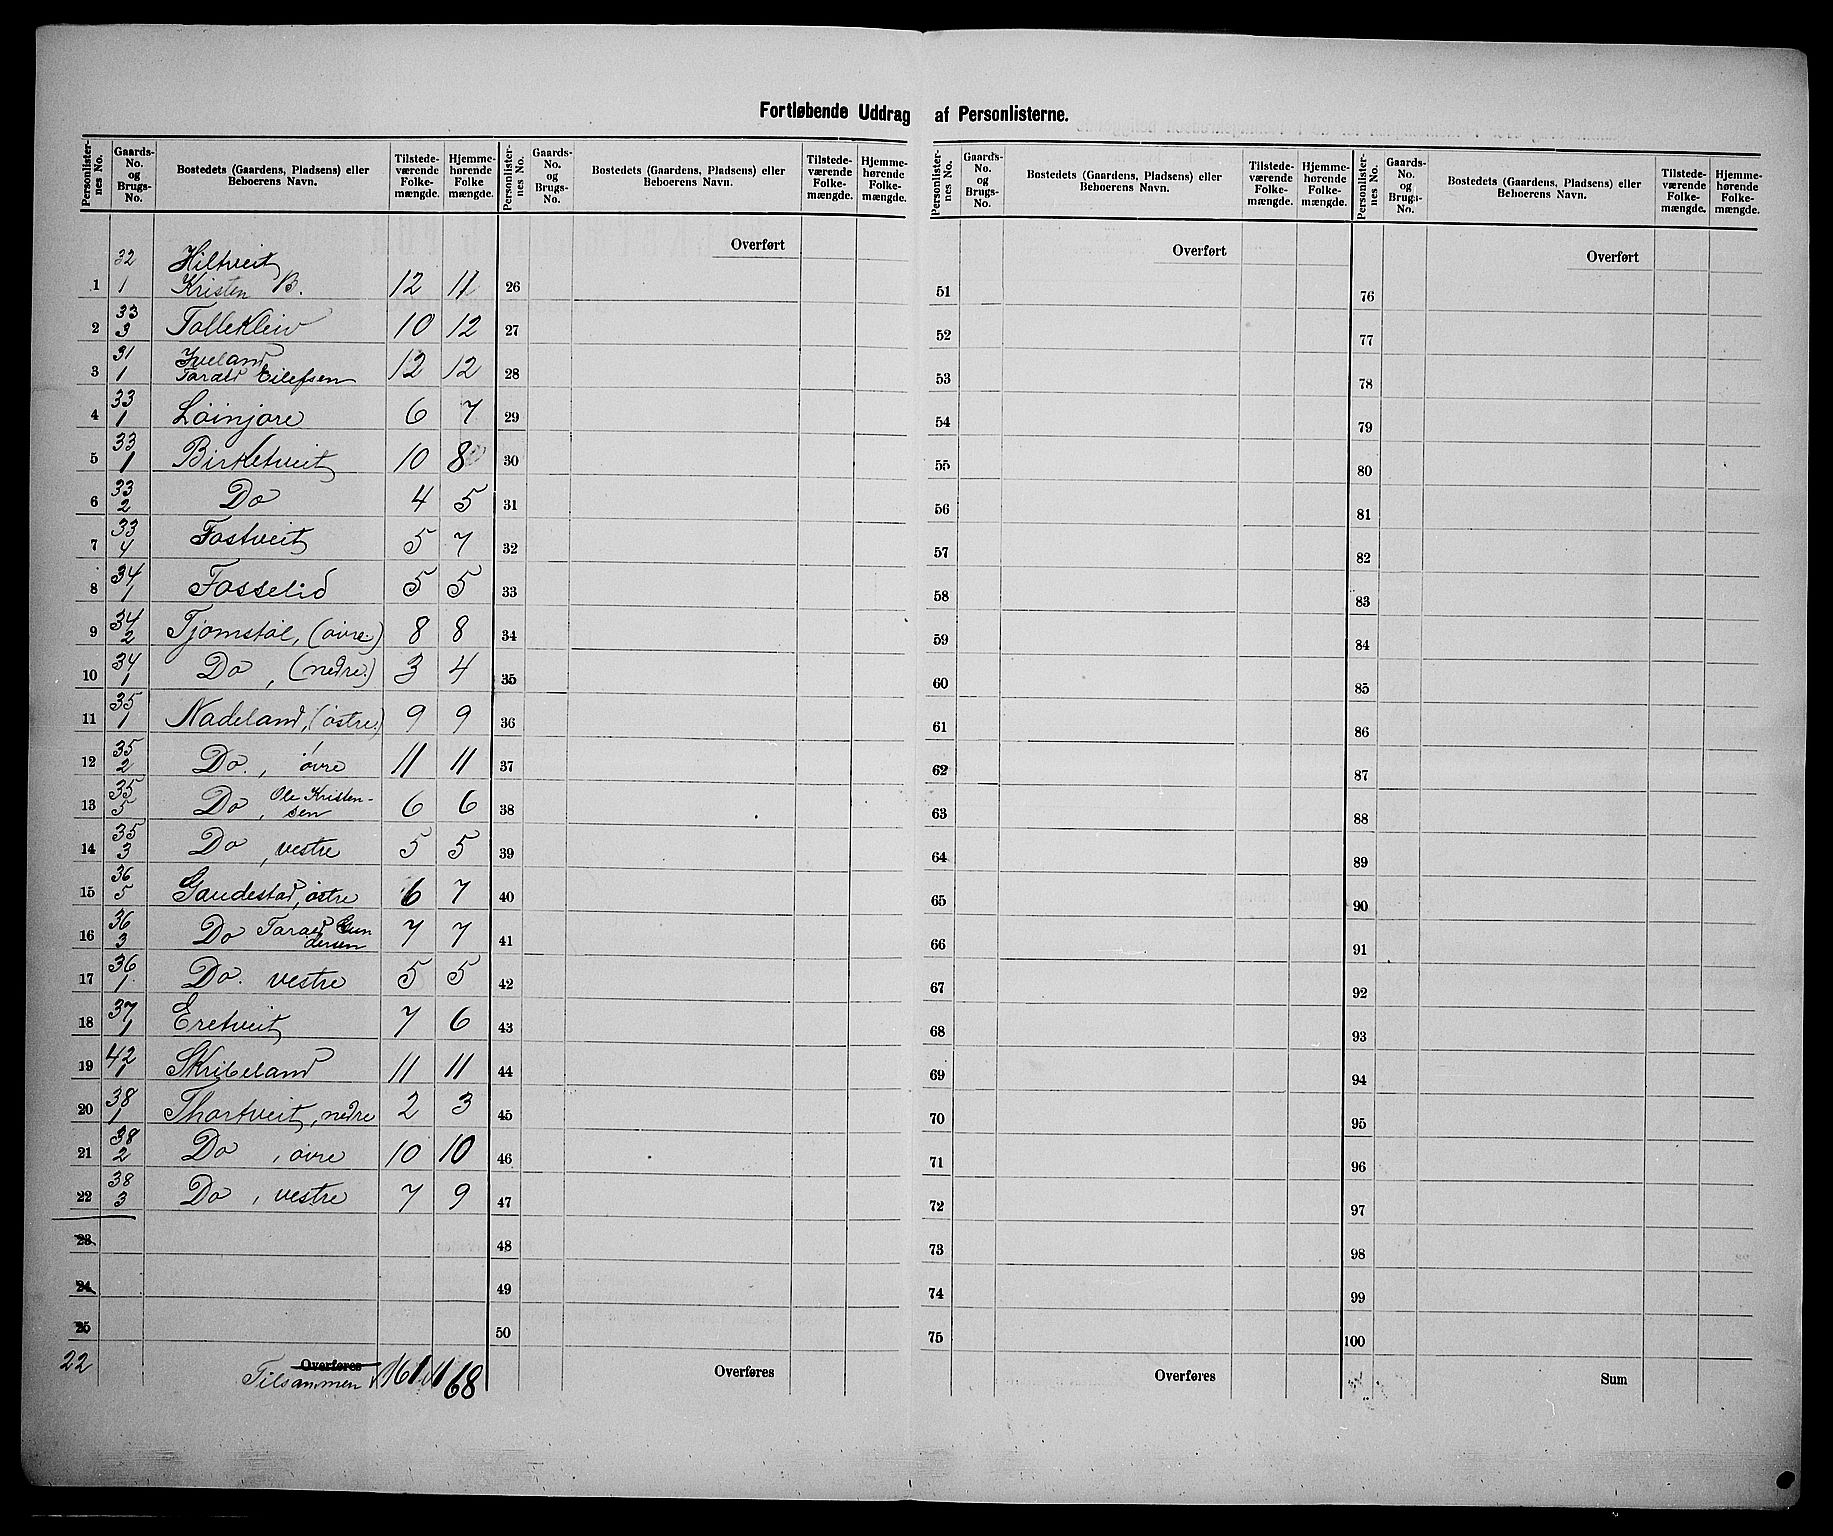 Fortløbende Uddrag af Personlisterne.
Personlister-nes No. | Gaards-No. og Brugs-No. | Bostedets (Gaardens, Pladsens) eller Beboerens Navn. | Tilstede-værende Folke-mængde. | Hjemme-hørende Folke mængde.
1 | 32 1 | Hiltveit Kristen B. | 12 | 11
2 | 33 3 | Tollekleiv | 10 | 12
3 | 31 1 | Iveland Tarald Eilefsen | 12 | 12
4 | 33 1 | Løinjore | 6 | 7
5 | 33 1 | Birketveit | 10 | 8
6 | 33 2 | Do | 4 | 5
7 | 33 4 | Fostveit | 5 | 7
8 | 34 1 | Fosselid | 5 | 5
9 | 34 2 | Tjomstøl, (øvre.) | 8 | 8
10 | 34 1 | Do, (nedre.) | 3 | 4
11 | 35 1 | Nadeland, (østre.) | 9 | 9
12 | 35 2 | Do., øvre | 11 | 11
13 | 35 5 | Do, Ole Kristen-sen | 6 | 6
14 | 35 3 | Do, vestre | 5 | 5
15 | 36 5 | Gaudestad, østre | 6 | 7
16 | 36 3 | Do Tarald Gundersen | 7 | 7
17 | 36 1 | Do. vestre | 5 | 5
18 | 37 1 | Eretveit | 7 | 6
19 | 42 1 | Skribeland | 11 | 11
20 | 38 1 | Thortveit, nedre | 2 | 3
21 | 38 2 | Do, øvre | 10 | 10
22 | 38 3 | Do, vestre | 7 | 9
23
24
25
22 | Overføres Tilsammen | 161 | 168
Personlister-nes No. | Gaards-No. og Brugs-No. | Bostedets (Gaardens, Pladsens) eller Beboerens Navn. | Tilstede-værende Folke-mængde. | Hjemme-hørende Folke-mængde.
Overført
26
27
28
29
30
31
32
33
34
35
36
37
38
39
40
41
42
43
44
45
46
47
48
49
50
Overføres
Personlister-nes No. | Gaards-No. og Brugs-No. | Bostedets (Gaardens, Pladsens) eller Beboerens Navn. | Tilstede-værende Folke-mængde. | Hjemme-hørende Folke-mængde.
Overført
51
52
53
54
55
56
57
58
59
60
61
62
63
64
65
66
67
68
69
70
71
72
73
74
75
Overføres
Personlister-nes No. | Gaards-No. og Brugs-No. | Bostedets (Gaardens, Pladsens) eller Beboerens Navn. | Tilstede-værende Folke-mængde. | Hjemme-hørende Folke-mængde.
Overført
76
77
78
79
80
81
82
83
84
85
86
87
88
89
90
91
92
93
94
95
96
97
98
99
100
Sum